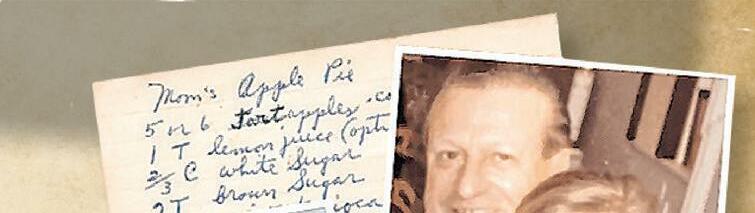 Mom's Apple Pie
5 or 6 Tart apples . co
1 T lemon juice (opti
2/3 C white Sugar
2T brown Sugar